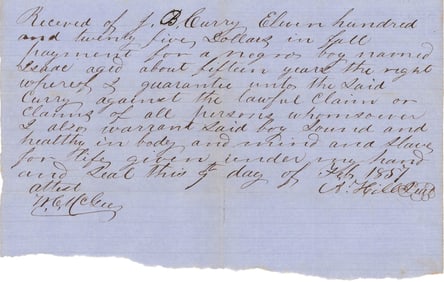 Received of J. B Curry Eleven hundred
and twenty five Dollars in full
payment for a negro boy named
Isaac aged about fifteen years the right
whereof I guarantie unto the Said
Curry against the lawful Claim or
Claims of all persons whomsoever
I also warrant Said boy Sound and
healthy in body and mind and Slave
for life given under my hand
and Seal this day of Feb 1857
attest A. Hill Seal